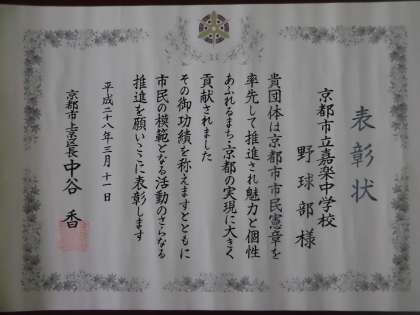 表彰状
京都市立嘉楽中学校
野球部様
貴団体は京都市市民憲章を
率先して推進され魅力と個性
あふれるまち・京都の実現に大きく
貢献されました
その御功績を称えますとともに
市民の模範となる活動のさらなる
推進を願いここに表彰します
平成二八年三月十一日
京都市上京区長 中谷 香